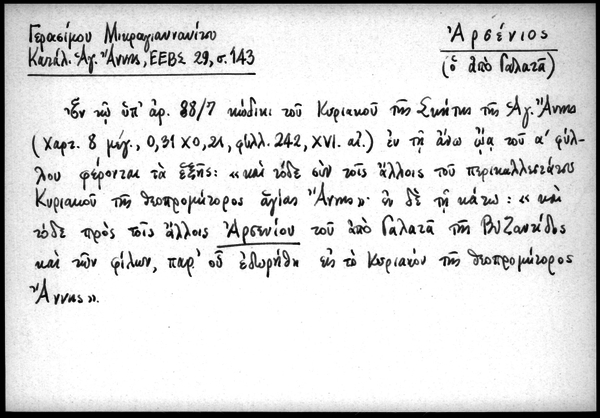 Γερασίμου Μικραγιαννανίτου
Κατάλ. Ἁγ. Ἄννης, ΕΕΒΣ 29, σ. 143
Ἀρσένιος
(ὁ ἀπὸ Γαλατᾶ)
Ἐν τῷ ὑπ' ἀρ. 88/7 κώδικι τοῦ Κυριακοῦ τῆς Σκήτης τῆς Ἁγ. Ἄννης
(χαρτ. 8 μέγ., 0,31 Χ 0,21, φύλλ. 242, XVI. αἰ.) ἐν τῇ ἄνω ᾤᾳ τοῦ α' φύλ-
λου φέρονται τὰ ἑξῆς: «καὶ τόδε σὺν τοῖς ἄλλοις τοῦ περικαλλεστάτου
Κυριακοῦ τῆς θεοπρομήτορος ἁγίας Ἄννης»· ἐν δὲ τῇ κάτω: «καὶ
τόδε πρὸς τοῖς ἄλλοις Ἀρσενίου τοῦ ἀπὸ Γαλατᾶ τῆς Βυζαντίδος
καὶ τῶν φίλων, παρ' οὗ ἐδωρήθη εἰς τὸ Κυριακὸν τῆς θεοπρομήτορος
Ἄννης».